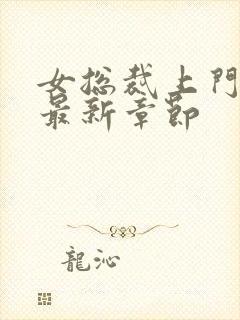 女总裁上門
最新章節
龍沁